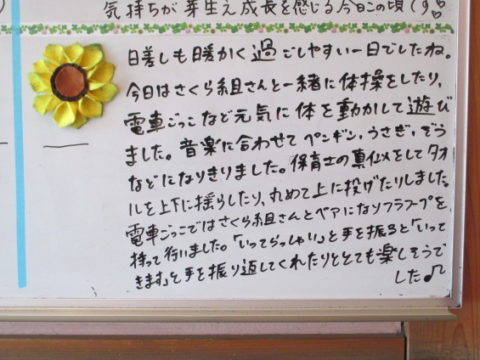 気持ちが芽生え成長を感じる今日この頃です
日差しも暖かく過ごしやすい一日でしたね。
今日はさくら組さんと一緒に体操をしたり、
電車ごっこなど元気に体を動かして遊び
ました。音楽に合わせてペンギン、うさぎ、ぞう
などになりきりました。保育士の真似をしてタオ
ルを上下に揺らしたり、丸めて上に投げたりしました。
電車ごっこではさくら組さんとペアになりフラフープを
持って行いました。「いってらっしゃい」と手を振ると「いって
きます」と手を振り返してくれたりととても楽しそうで
した♪